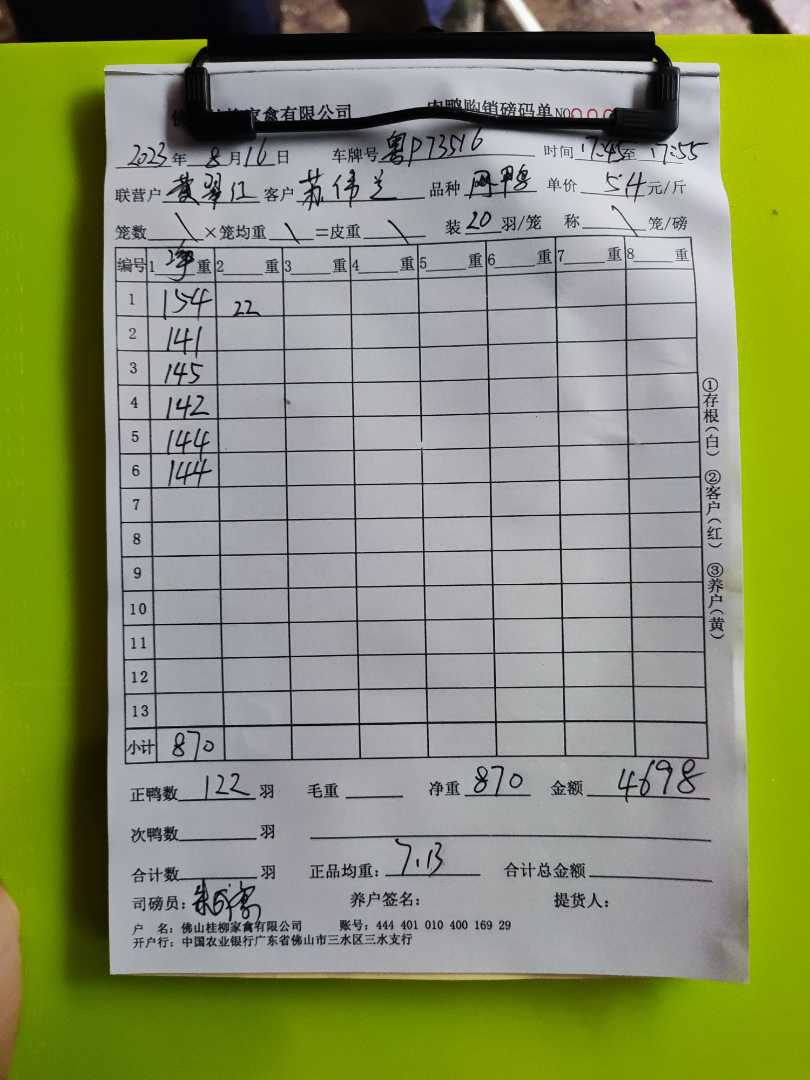 桂柳家禽有限公司 肉鸭购销磅码单 NO
2023年8月16日 车牌号 粤P73516 时间 17:45至17:55
联营户 黄翠江 客户 苏伟兰 品种 网鸭 单价 5.4 元/斤
笼数 \ ×笼均重 \ =皮重 \ 装 20 羽/笼 称 \ 笼/磅
编号 1 净 重 2 重 3 重 4 重 5 重 6 重 7 重 8 重
1 154 22
2 141
3 145
4 142
5 144
6 144
7
8
9
10
11
12
13
小计 870
正鸭数 122 羽 毛重 净重 870 金额 4698
次鸭数 羽
合计数 羽 正品均重: 7.13 合计总金额
司磅员: 养户签名: 提货人:
户 名: 佛山桂柳家禽有限公司 账号: 444 401 010 400 169 29
开户行: 中国农业银行广东省佛山市三水区三水支行
①存根(白) ②客户(红) ③养户(黄)